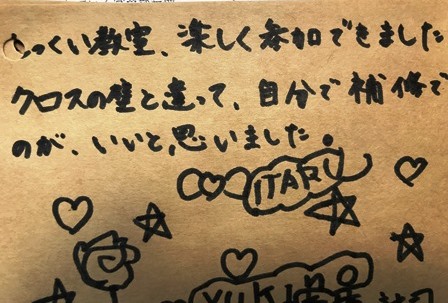 っくい教室、楽しく参加できました
クロスの壁と違って、自分で補修で
のが、いいと思いました。
ITARU
YUKI